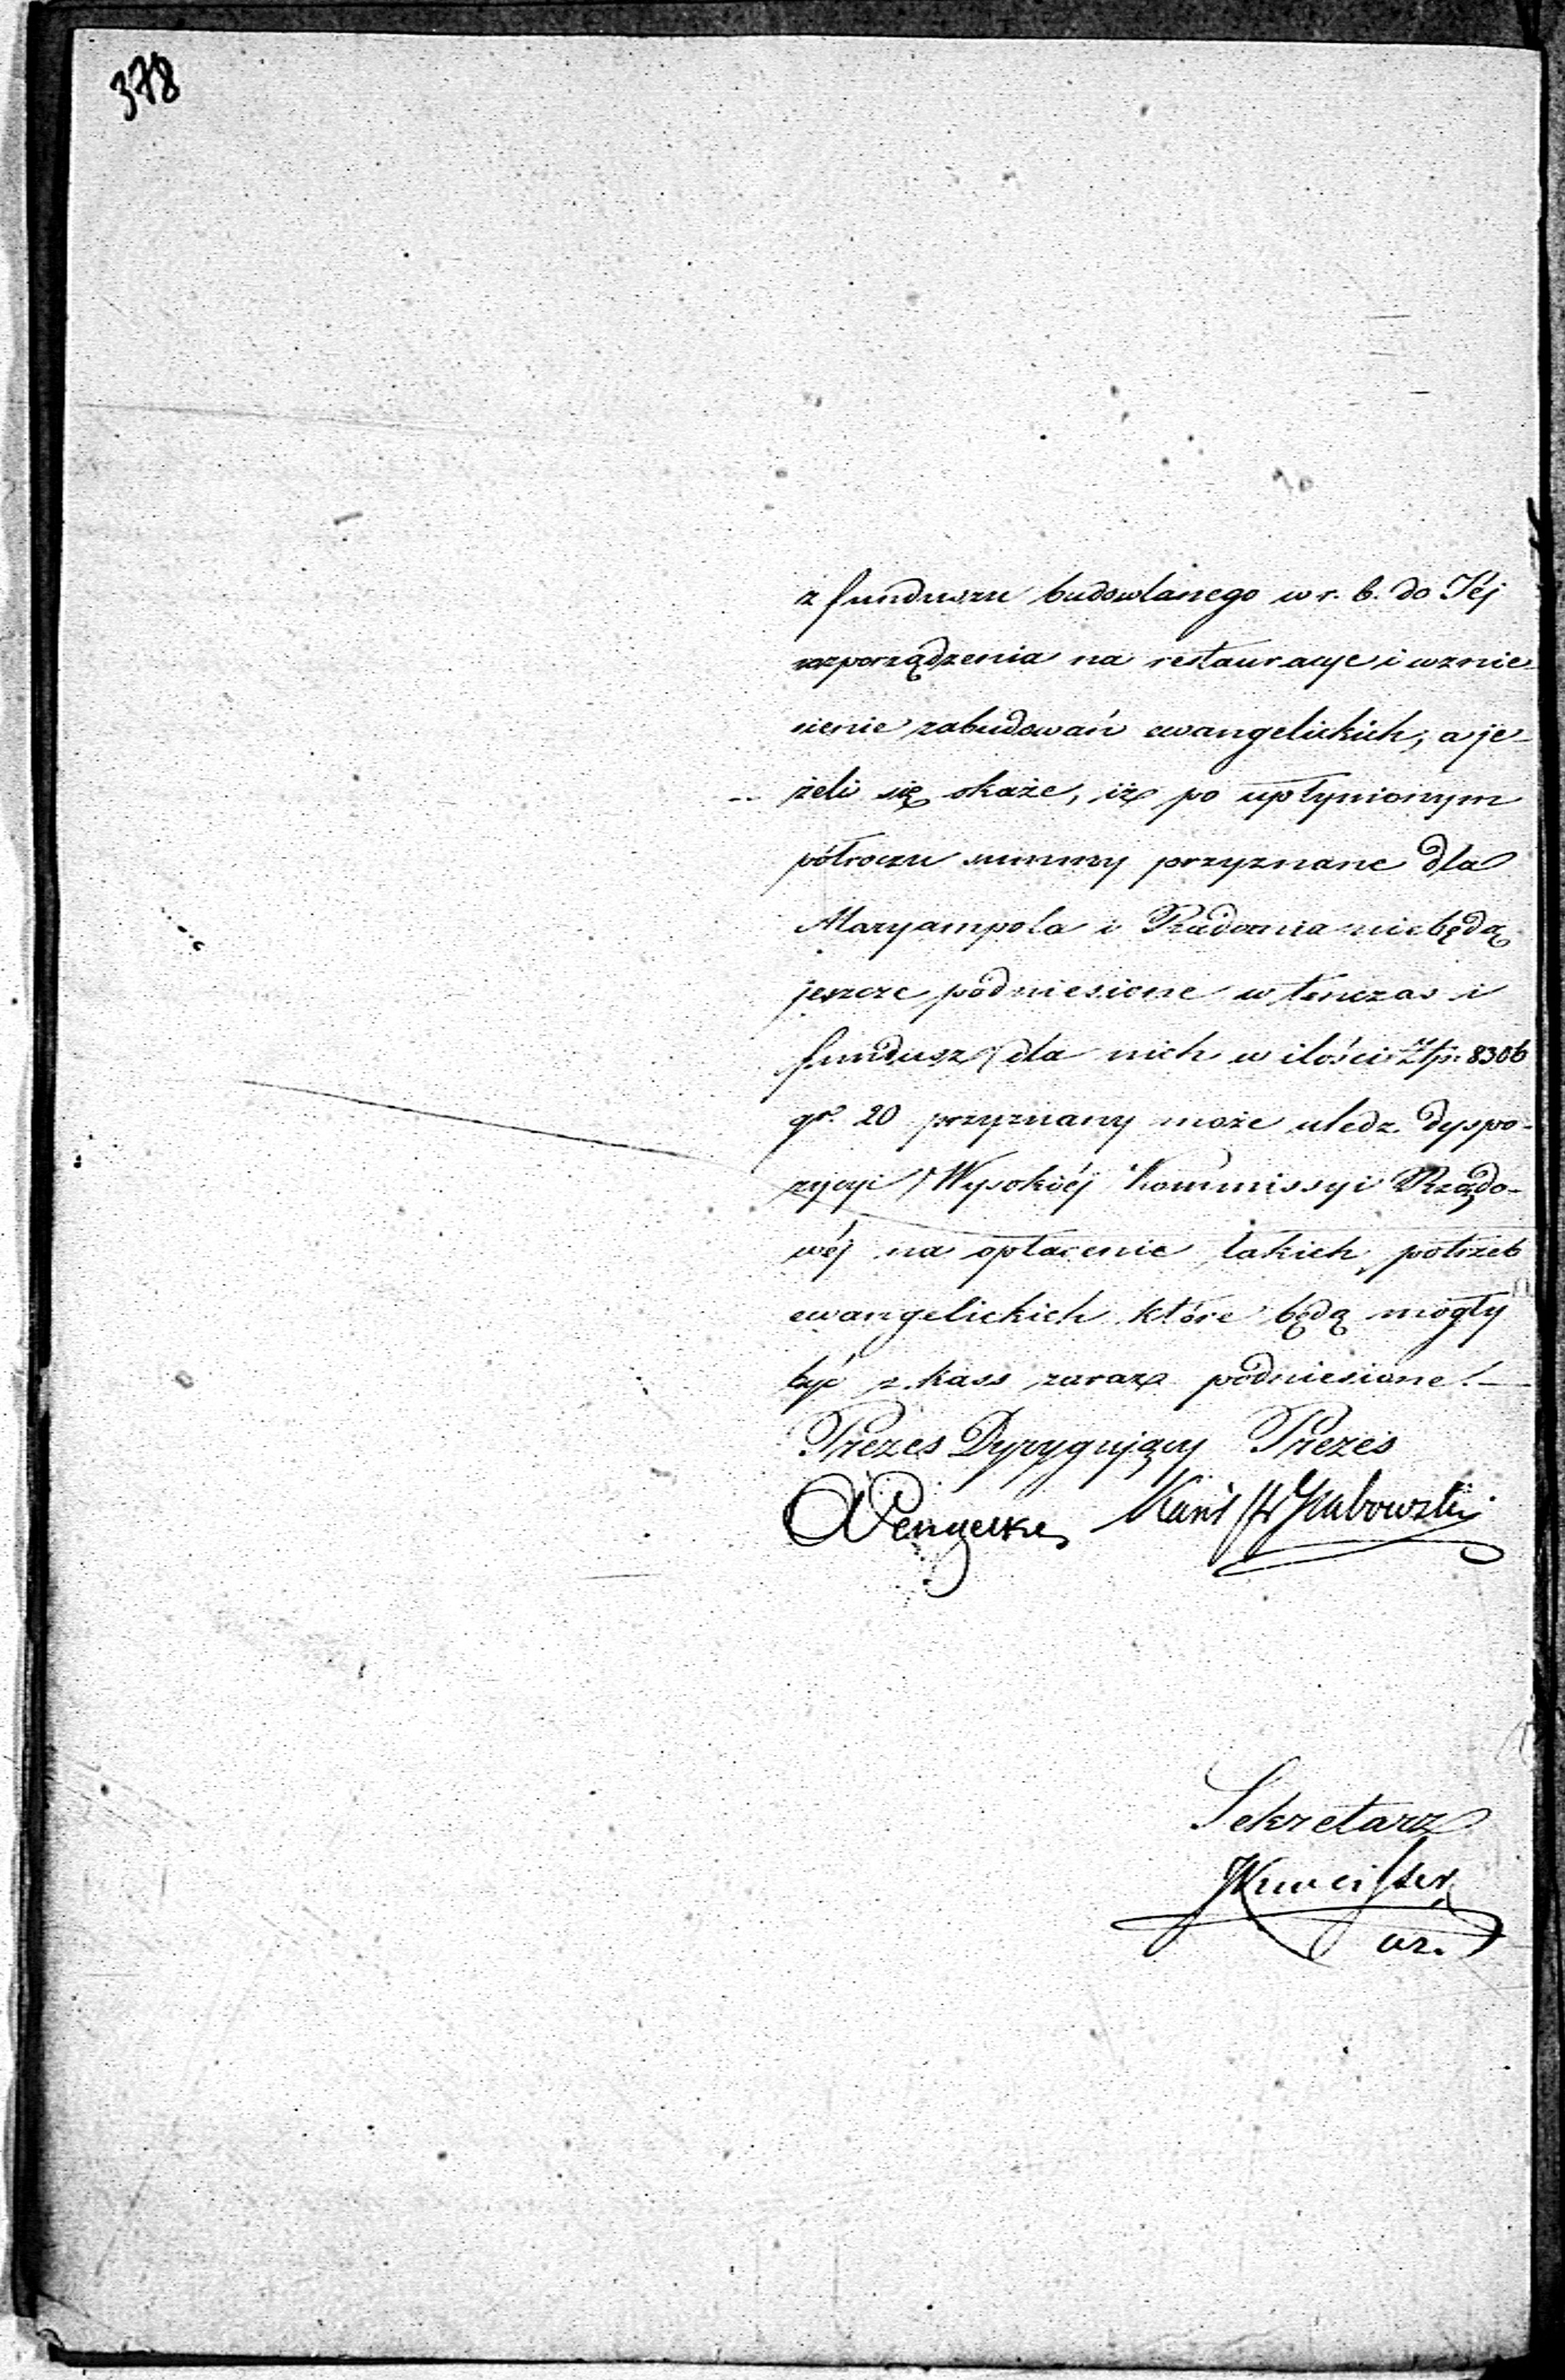 378
z funduszu budowlanego w r. b. do Jéj
rozporządzenia na restauracye i wznie-
sienie zabudowań ewangelickich; a je-
żeli się okaże, iż po upłynionym
półroczu summy przyznane dla
Maryampola i Radomia nie będą
jeszcze podniesione w tenczas i
fundusz dla nich w ilości Złp. 8306
gr. 20 przyznany może uledz dyspo-
zycyi Wysokiéj Kommissyi Rządo-
wéj na opłacenie takich potrzeb
ewangelickich które będą mogły
być z kass zaraz podniesione. —
Prezes Dyrygujący Prezes
Grabowski
Sekretarz